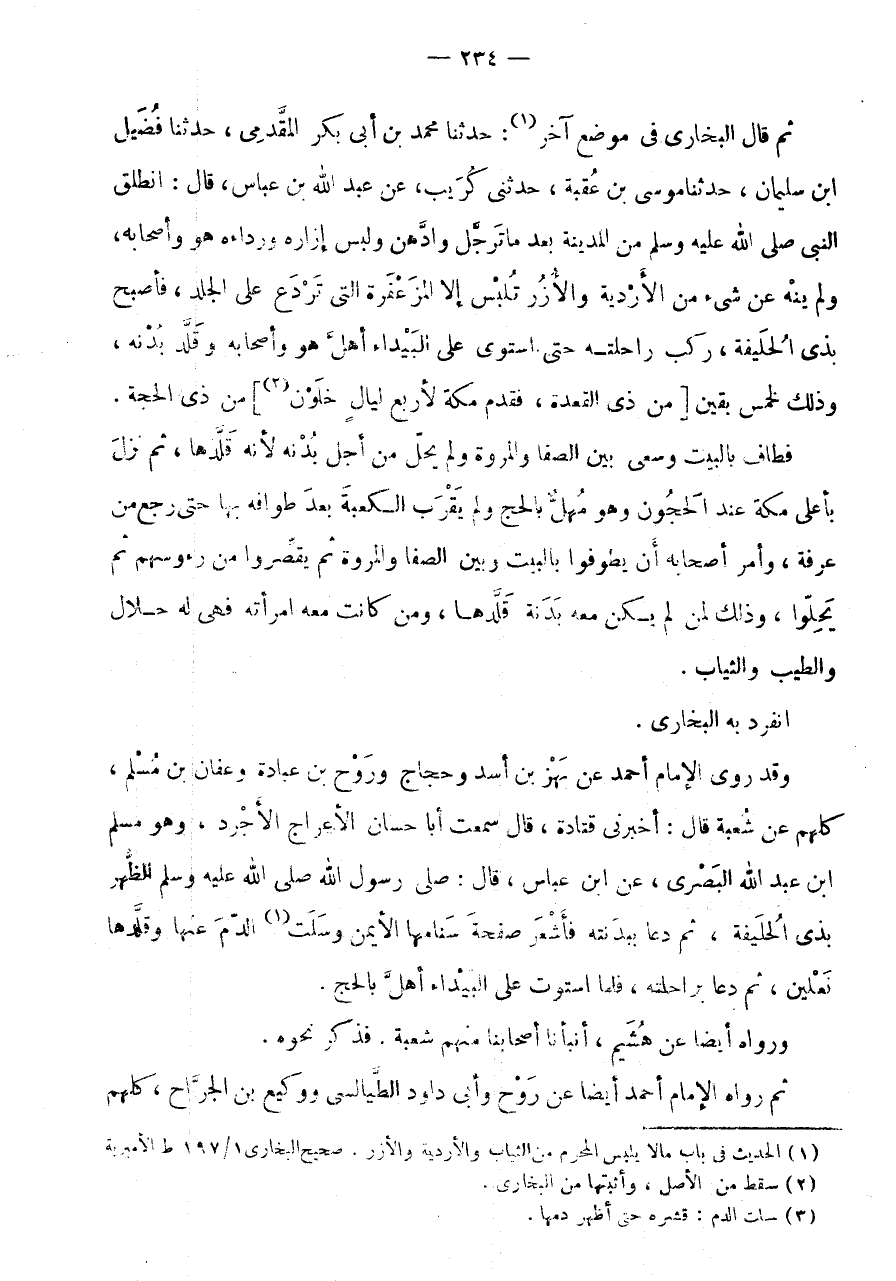 — ٢٣٤ —
ثم قال البخارى فى موضع آخر(١) : حدثنا محمد بن أبى بكر المقَّدمِى ، حدثنا فُضَيل
ابن سليمان ، حدثناموسى بن عُقبة ، حدثنى كُرَيب، عن عبد الله بن عباس، قال : انطلق
النبى صلى الله عليه وسلم من المدينة بعد ماتَرجَّل وادَّهن ولبس إزاره ورداءه هو وأصحابه،
ولم ينْه عن شىء من الأَرْدية والأُزُر تُلبَس إلا المزَعْفَرة التى تَرْدَع على الجلد ، فأصبح
بذى الحلَيفة ، ركب راحلتـه حتى استوى على البَيْداء أهلَّ هو وأصحابه وقَلَّد بُدْنه ،
وذلك لخمس بقين [ من ذى القعدة ، فقدم مكة لأربع ليالٍ خلَوْن(٢) ] من ذى الحجة .
فطاف بالبيت وسعى بين الصفا والمروة ولم يحلّ من أجل بُدْنه لأنه قَلَّدها ، ثم نزلَ
بأعلى مكة عند الحَجُون وهو مُهلٌّ بالحج ولم يَقْرَب الـكعبةَ بعدَ طوافه بها حتى رجع من
عرفة ، وأمر أصحابه أن يطوفوا بالبيت وبين الصفا والمروة ثم يقصّروا من رءوسهم ثم
يَحِلّوا ، وذلك لمن لم يـكن معه بَدَنة قَلَّدهـا ، ومن كانت معه امرأته فهى له حـلال
والطيب والثياب .
انفرد به البخارى .
وقد روى الإمام أحمد عن بَهْز بن أسد وحجاج ورَوْح بن عبادة وعفان بن مُسْلم ،
كلهم عن شُعبة قال : أخبرنى قتادة ، قال سمعت أبا حسان الأعراج الأَجْرد ، وهو مسلم
ابن عبد الله البَصْرى ، عن ابن عباس ، قال : صلى رسول الله صلى الله عليه وسلم الظُّهر
بذى الحلَيفة ، ثم دعا ببدَنته فأَشْعَر صفحةَ سَنامها الأيمن وسلَت(١) الدّمَ عنها وقلَّدها
نَعْلين ، ثم دعا براحلته ، فلما استوت على البيْداء أهلَّ بالحج .
ورواه أيضا عن هُشَيم ، أنبأنا أصحابنا منهم شعبة . فذكر نحوه .
ثم رواه الإمام أحمد أيضا عن رَوْح وأبى داود الطَّيالسى ووكيع بن الجرَّاح ، كلهم
(١) الحديث فى باب مالا يلبس المحرم من الثياب والأردية والأزر . صحيح البخارى ١٩٧/١ ط الأميرية
(٢) سقط من الأصل ، وأثبتها من البخارى .
(٣) سات الدم : قشره حتى أظهر دمها .